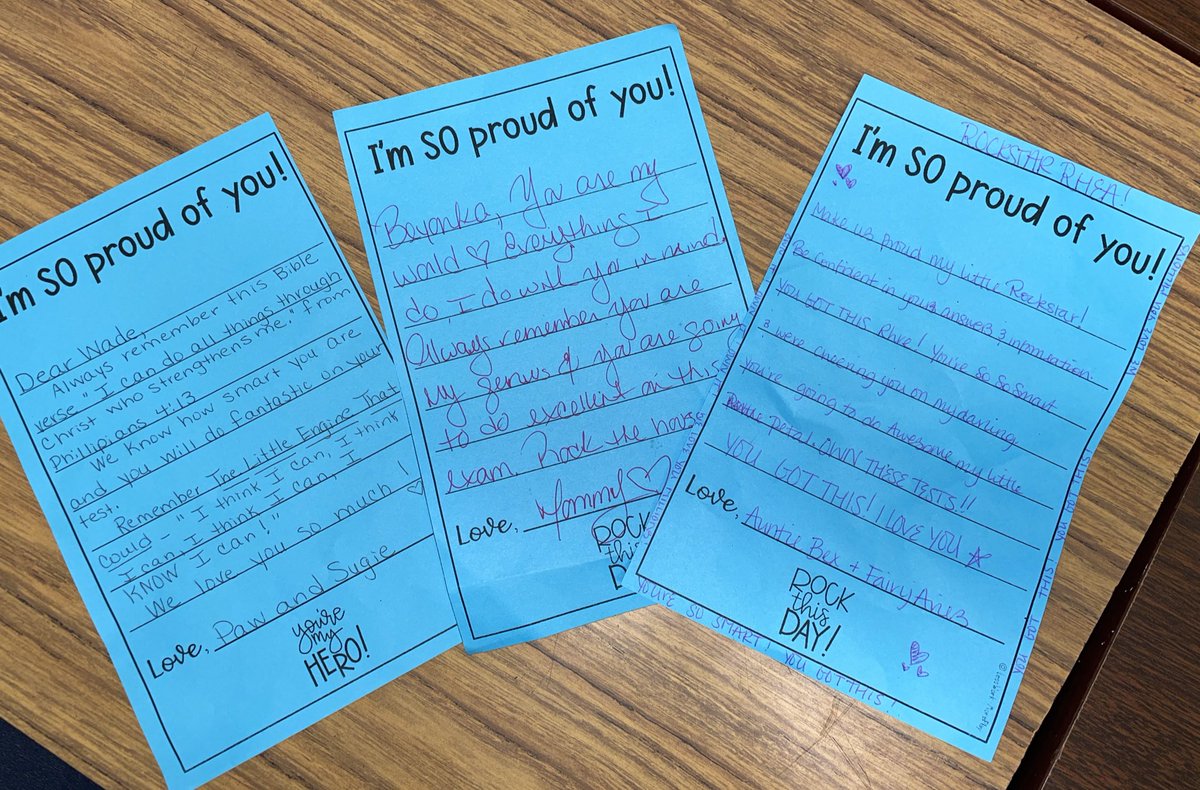 I'm SO proud of you!
Dear Wade,
Always remember this Bible
verse "I can do all things through
Christ who strengthens me." from
Philipians 4:13
We know how smart you are
and you will do fantastic on your
test.
Remember The Little Engine That
Could - "I think I can, I think
I can, I think I can, I
KNOW I can!"
We love you so much!
Love, Paw and Sugie
you're
my
HERO!
I'm SO proud of you!
Beyonka, You are my
world everything I
do, I do with you in mind.
Always remember you are
my genius & you are going
to do excellent on this
exam. Rock the house
Love, Mommy
ROCK
this
ROCKSTAR RHEA!
I'm SO proud of you!
Make us proud my little Rockstar!
Be confident in your answers & information
YOU GOT THIS Rhea! You're so so smart
& were cheering you on my darling
you're going to do awesome my little
petal. OWN THESE TESTS!!
YOU GOT THIS! I LOVE YOU
Love, Auntie Bex +
ROCK
this
DAY!
YOU'RE SO SMART! YOU GOT THIS!
YOU GOT THIS! YOU GOT THIS!